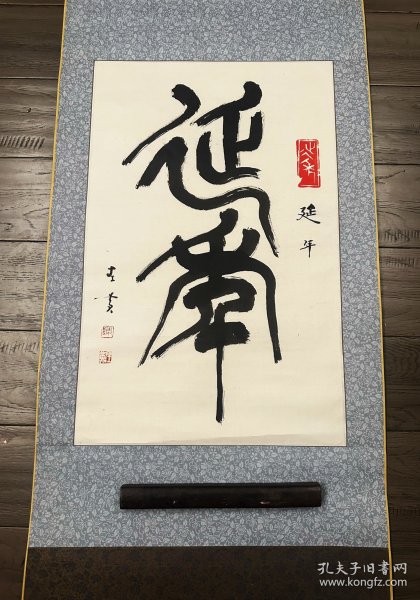 延年
延年
孔夫子旧书网
www.kongfz.com